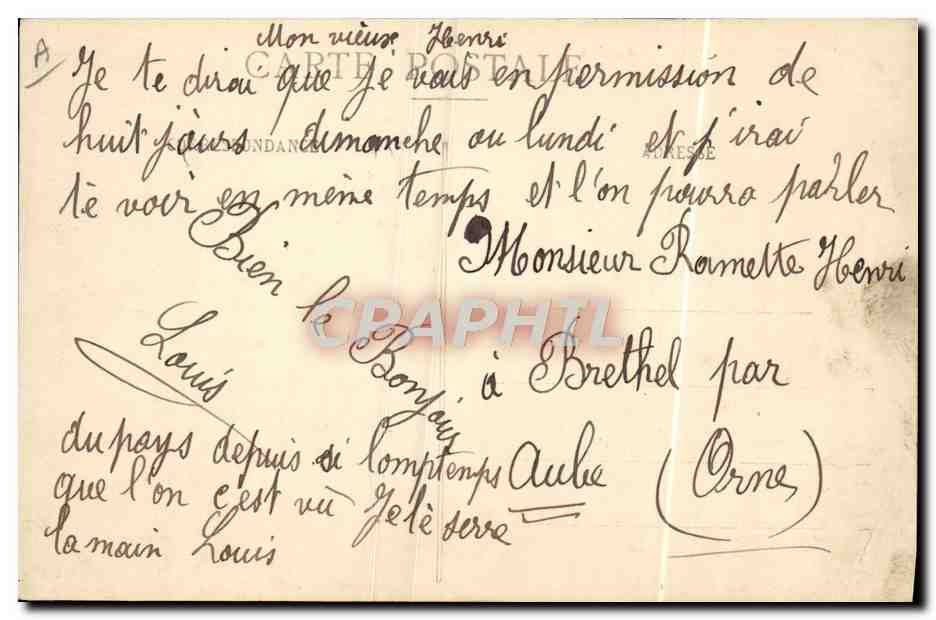 A
Mon vieux Henri
CARTE POSTALE
Je te dirai que je vais en permission de
huit jours dimanche ou lundi et j'irai
CORRESPONDANCE
ADRESSE
te voir en même temps et l'on pourra parler
Bien le Bonjour
Louis
du pays depuis si lomptemps
que l'on c'est vû Je te serre
la main Louis
Monsieur Ramette Henri
à Brethel par
Aube (Orne)
CPARPHIL